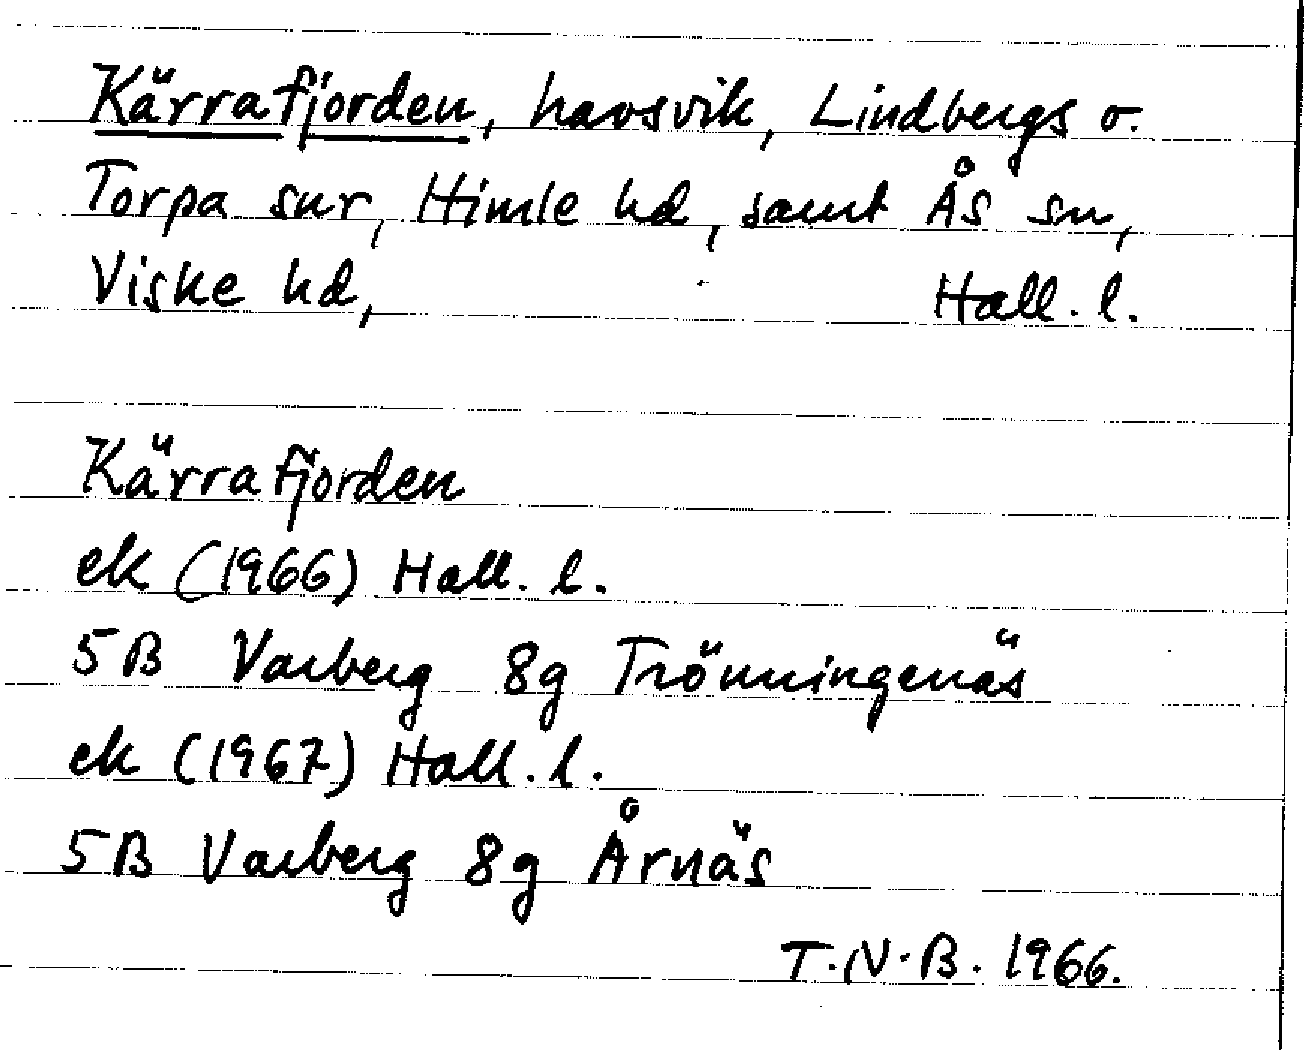 Kärrafjorden, havsvik, Lindbergs o.
Torpa snr, Himle hd, samt Ås sn,
Viske hd, Hall. l.
Kärrafjorden
ek (1966) Hall. l.
5B Varberg 8g Trönningenäs
ek (1967) Hall. l.
5B Varberg 8g Årnäs
T.N.B. 1966.